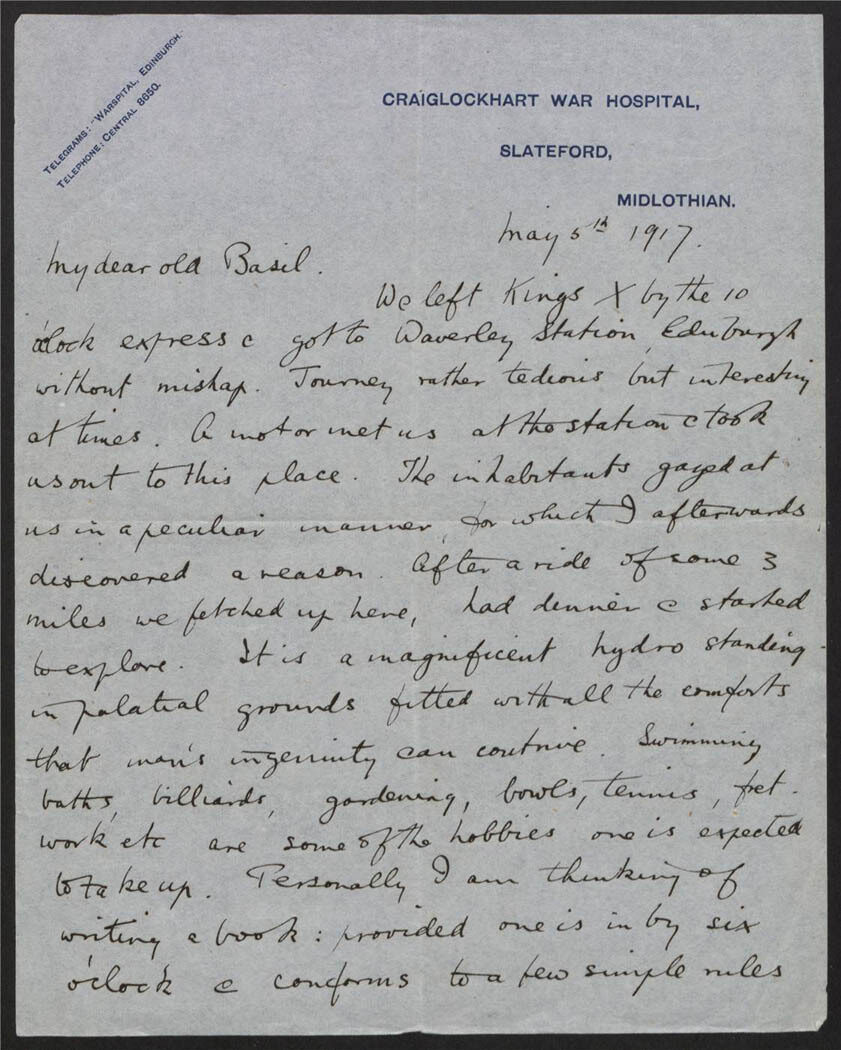 TELEGRAMS: "WARSPITAL, EDINBURGH.
TELEPHONE: CENTRAL 8650.
CRAIGLOCKHART WAR HOSPITAL,
SLATEFORD,
MIDLOTHIAN.
May 5th 1917.
My dear old Basil.
We left Kings X by the 10
o'clock express & got to Waverley Station, Edinburgh
without mishap. Journey rather tedious but interesting
at times. A motor met us at the station & took
us out to this place. The inhabitants gazed at
us in a peculiar manner, for which I afterwards
discovered a reason. After a ride of some 3
miles we fetched up here, had dinner & started
to explore. It is a magnificent hydro standing
in palatial grounds fitted with all the comforts
that man's ingenuity can contrive. Swimming
baths, billiards, gardening, bowls, tennis, fret-
work etc are some of the hobbies one is expected
to take up. Personally I am thinking of
writing a book: provided one is in by six
o'clock & conforms to a few simple rules